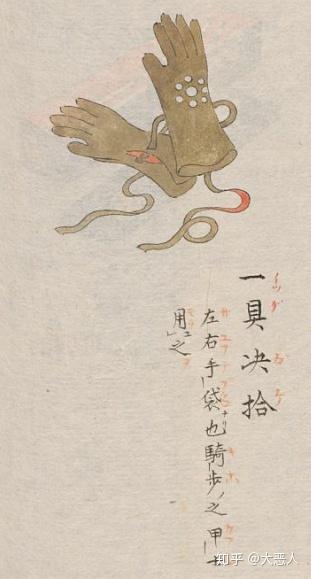 一具决拾
左右手袋也騎歩ノ之甲士
用之
知乎 @大恶人